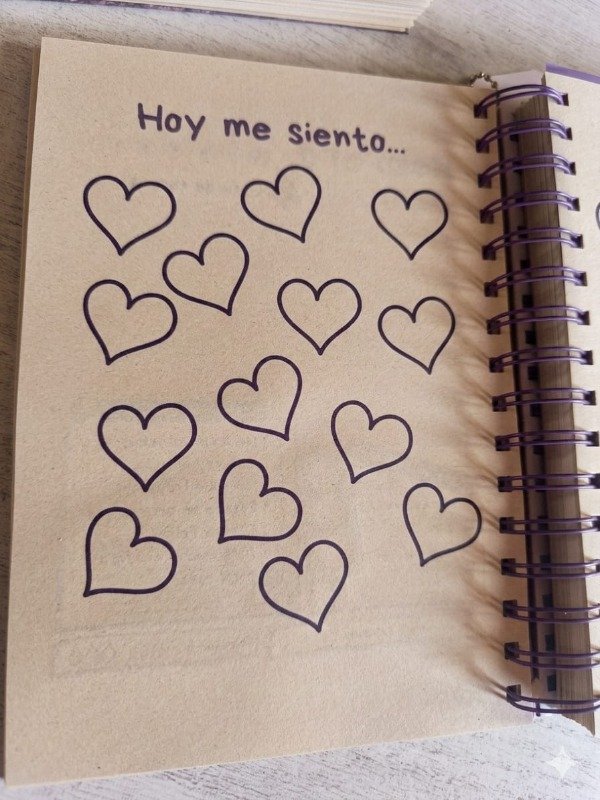 Hoy me siento...